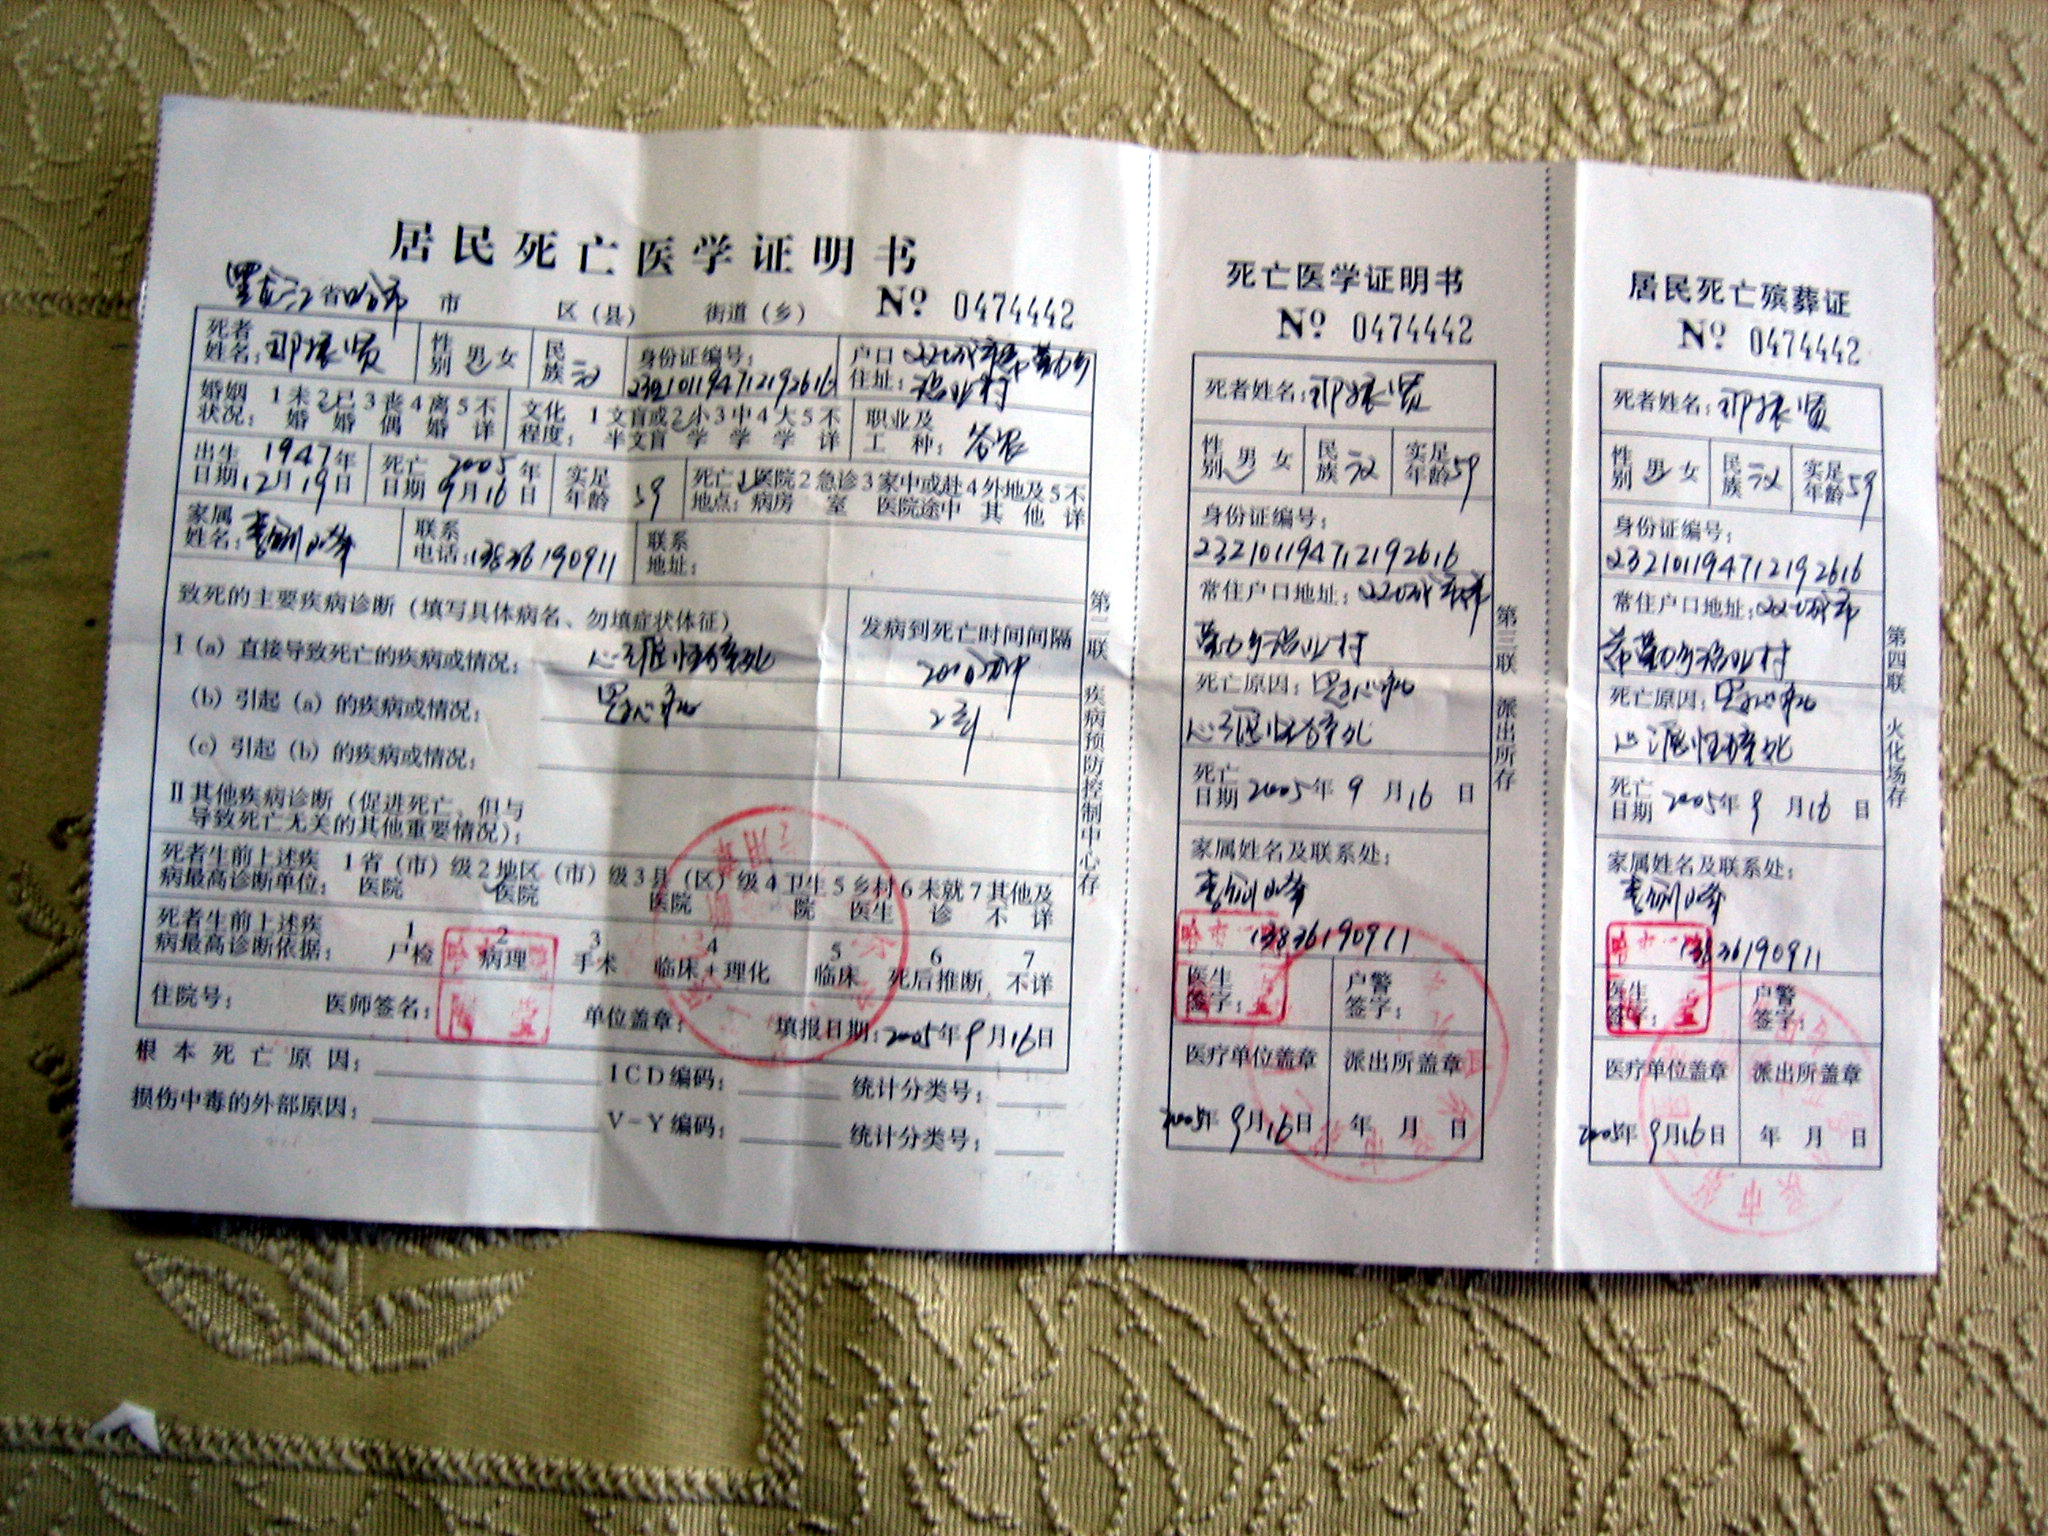 居民死亡医学证明书
黑龙江省哈市 市 区（县） 街道（乡） № 0474442
死者姓名： 性别 男 女 民族 汉 身份证编号：232101194712192616 户口住址：双城市 村
婚姻状况： 1未婚 2已婚 3丧偶 4离婚 5不详 文化程度： 1文盲或半文盲 2小学 3中学 4大学 5不详 职业及工种： 务农
出生日期 1947年12月19日 死亡日期 2005年9月16日 实足年龄 59 死亡地点： 1医院病房 2急诊室 3家中或赴医院途中 4外地及其他 5不详
家属姓名： 联系电话：13836190911 联系地址：
致死的主要疾病诊断（填写具体病名、勿填症状体征） 发病到死亡时间间隔
Ⅰ（a）直接导致死亡的疾病或情况： 心源性猝死
（b）引起（a）的疾病或情况：
（c）引起（b）的疾病或情况：
Ⅱ其他疾病诊断（促进死亡、但与
导致死亡无关的其他重要情况）：
死者生前上述疾病最高诊断单位： 1省（市）级医院 2地区（市）级医院 3县（区）级医院 4卫生院 5乡村医生 6未就诊 7其他及不详
死者生前上述疾病最高诊断依据： 1尸检 2病理 3手术 4临床+理化 5临床 6死后推断 7不详
住院号： 医师签名： 单位盖章： 填报日期：2005年9月16日
根本死亡原因： ICD编码： 统计分类号：
损伤中毒的外部原因： V-Y编码： 统计分类号：
第二联 疾病预防控制中心存
死亡医学证明书
№ 0474442
死者姓名：
性别 男 女 民族 汉 实足年龄 59
身份证编号：
232101194712192616
常住户口地址：双城市
村
死亡原因：
心源性猝死
死亡日期 2005年9月16日
家属姓名及联系处：
13836190911
医生签字： 户警签字：
医疗单位盖章 派出所盖章
2005年9月16日 年 月 日
第三联 派出所存
居民死亡殡葬证
№ 0474442
死者姓名：
性别 男 女 民族 汉 实足年龄 59
身份证编号：
232101194712192616
常住户口地址：双城市
村
死亡原因：
心源性猝死
死亡日期 2005年9月16日
家属姓名及联系处：
13836190911
医生签字： 户警签字：
医疗单位盖章 派出所盖章
2005年9月16日 年 月 日
第四联 火化场存